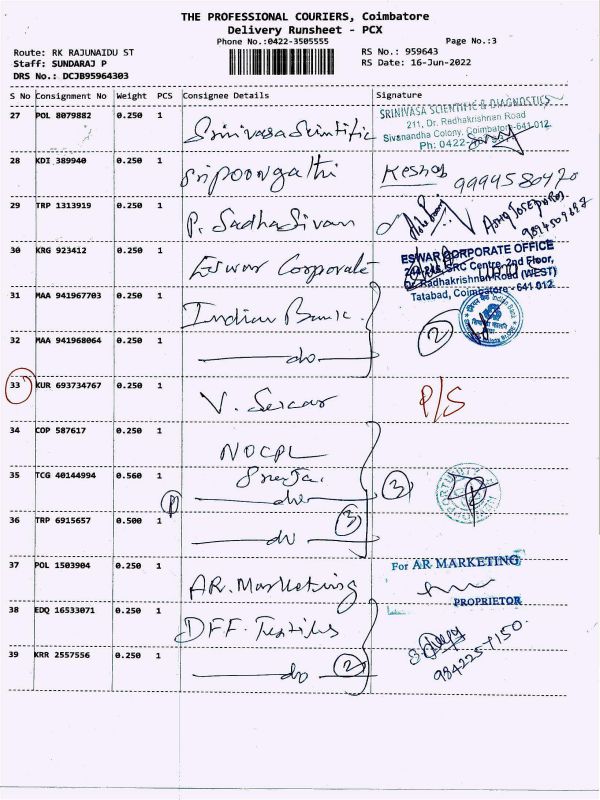 THE PROFESSIONAL COURIERS, Coimbatore
Delivery Runsheet - PCX
Phone No.:0422-3505555
Page No.:3
Route: RK RAJUNAIDU ST
RS No.: 959643
Staff: SUNDARAJ P
RS Date: 16-Jun-2022
DRS No.: DCJB95964303
S No Consignment No Weight PCS Consignee Details Signature
27 POL 8079882 0.250 1 Srinivasa Scintific
SRINIVASA SCIENTIFIC & DIAGNOSTICS
211, Dr. Radhakrishnan Road
Sivanandha Colony, Coimbatore-641 012.
Ph: 0422-
28 KDI 389940 0.250 1 Sripoongathi Keshav
29 TRP 1313919 0.250 1 P. SadhaSivam
30 KRG 923412 0.250 1 Eswar Corporate
ESWAR CORPORATE OFFICE
SRC Centre, 2nd Floor,
Dr. Radhakrishnan Road (WEST)
Tatabad, Coimbatore - 641 012.
31 MAA 941967703 0.250 1 Indian Bank.
32 MAA 941968064 0.250 1 do
2
33 KUR 693734767 0.250 1 V. Sekar P/S
34 COP 587617 0.250 1 NOCPL
35 TCG 40144994 0.560 1 do
3
36 TRP 6915657 0.500 1 do 3
37 POL 1503904 0.250 1 AR. Marketing
For AR MARKETING
PROPRIETOR
38 EDQ 16533071 0.250 1 DFF. Textiles
39 KRR 2557556 0.250 1 do 2